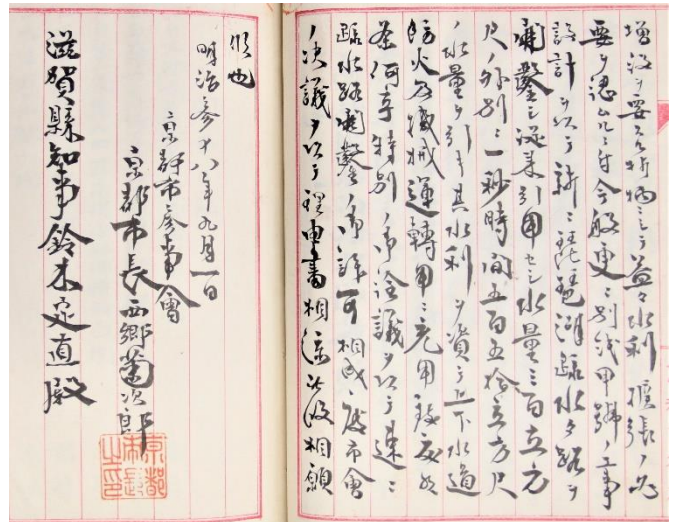 増設ヲ要スル折柄ニシテ益々水利拡張ノ必
要ヲ認メ候ニ付今般更ニ別紙甲号ノ工事
設計ヲ以テ新ニ琵琶湖疏水々路ヲ
開鑿シ従来引用セシ水量三百立方
尺ノ外別ニ一秒時間五百五拾立方尺
ノ水量ヲ引キ其水利ヲ資シ上下水道
防火及機械運転用ニ充用致度候
条何卒特別ノ御詮議ヲ以テ速ニ
疏水路開鑿ノ御許可相成度市会
ノ決議ヲ以テ理由書相添此段相願
候也
明治参十八年九月一日
京都市参事会
京都市長西郷菊次郎
滋賀縣知事鈴木定直殿
京都
市長
之印